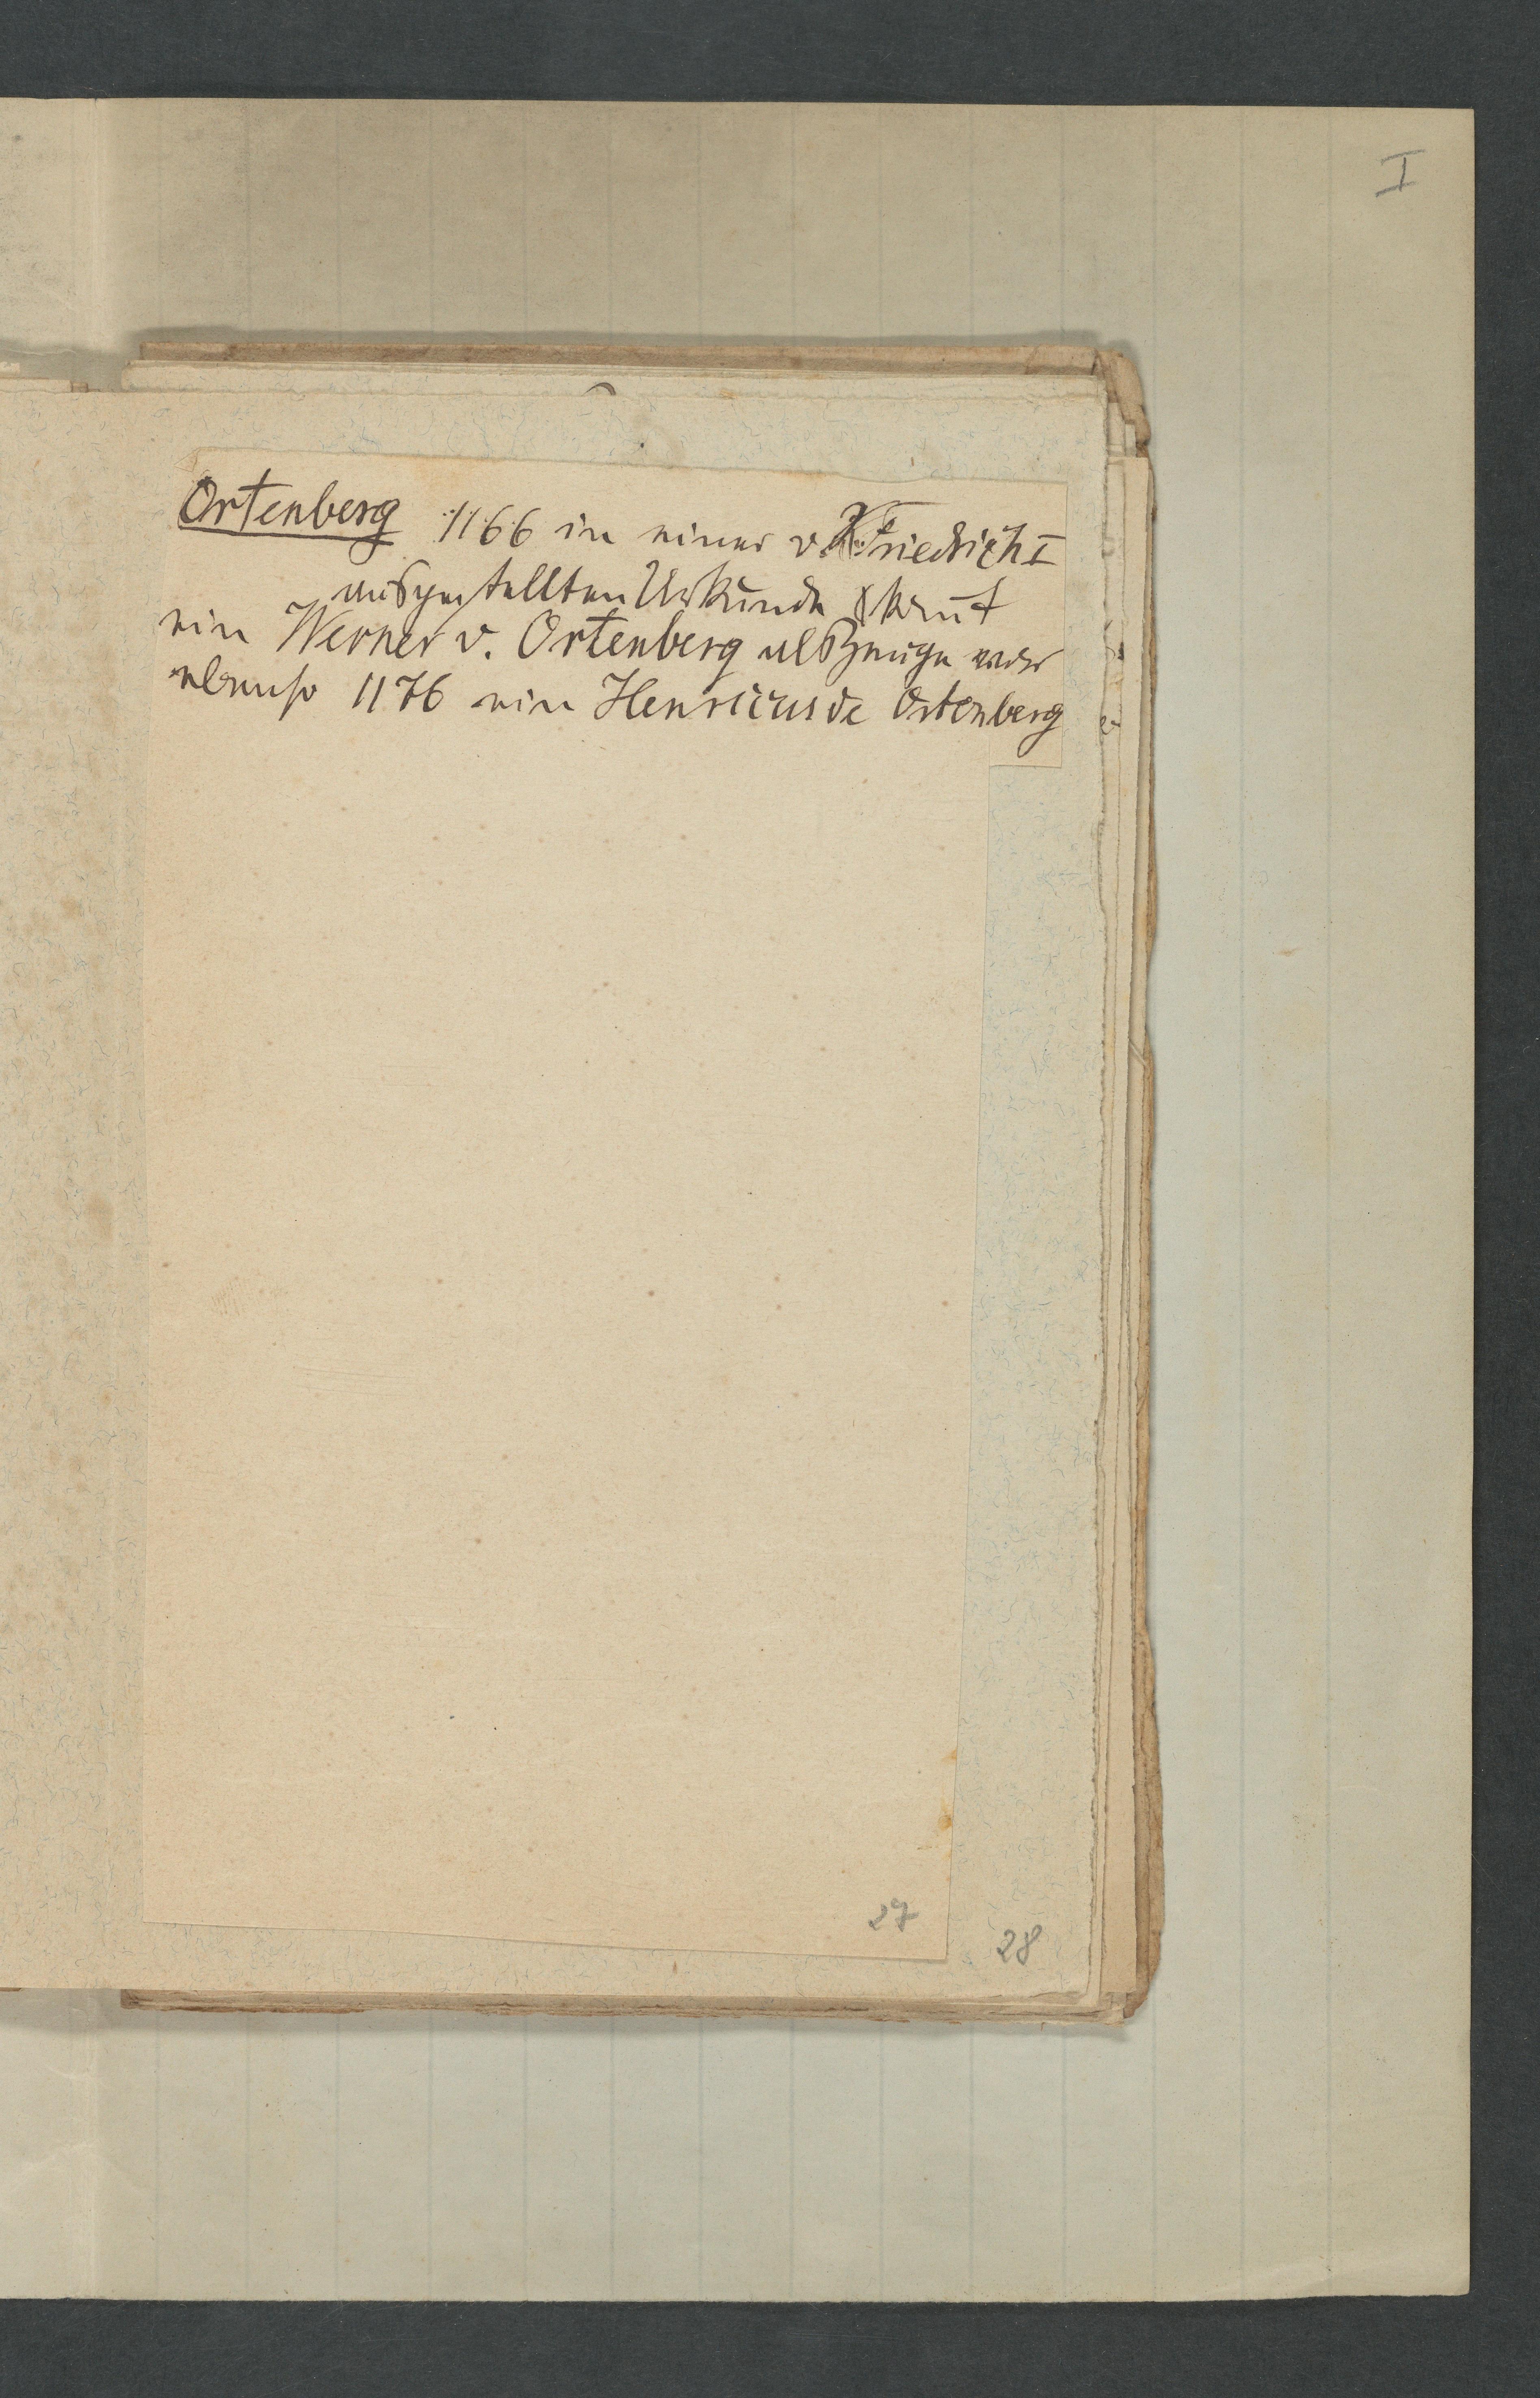 I
Ortenberg 1166 in einer v. K Friedrich I
ausgestellten Urkunde
ein Werner v. Ortenberg als Zeuge
ebenso 1176 ein Henricus de Ortenberg
27
28